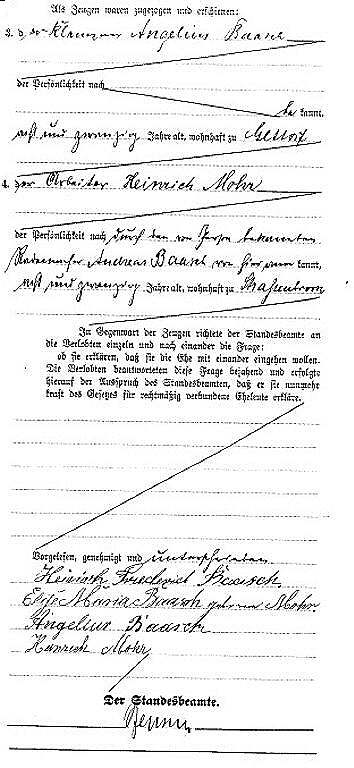 Als Zeugen waren zugezogen und erschienen:
3. der Klempner Angelius Baasch
der Persönlichkeit nach
bekannt,
acht und zwanzig Jahre alt, wohnhaft zu Gettorf
4. der Arbeiter Heinrich Mohr
der Persönlichkeit nach durch den von Person bekannten
Rademacher Andreas Baasch von hier anerkannt,
acht und zwanzig Jahre alt, wohnhaft zu
In Gegenwart der Zeugen richtete der Standesbeamte an
die Verlobten einzeln und nach einander die Frage:
ob sie erklären, daß sie die Ehe mit einander eingehen wollen.
Die Verlobten beantworteten diese Frage bejahend und erfolgte
hierauf der Ausspruch des Standesbeamten, daß er sie nunmehr
kraft des Gesetzes für rechtmäßig verbundene Eheleute erkläre.
Vorgelesen, genehmigt und unterschrieben
Heinrich Friedrich Baasch.
Maria Baasch geborene Mohr.
Angelius Baasch
Heinrich Mohr
Der Standesbeamte.